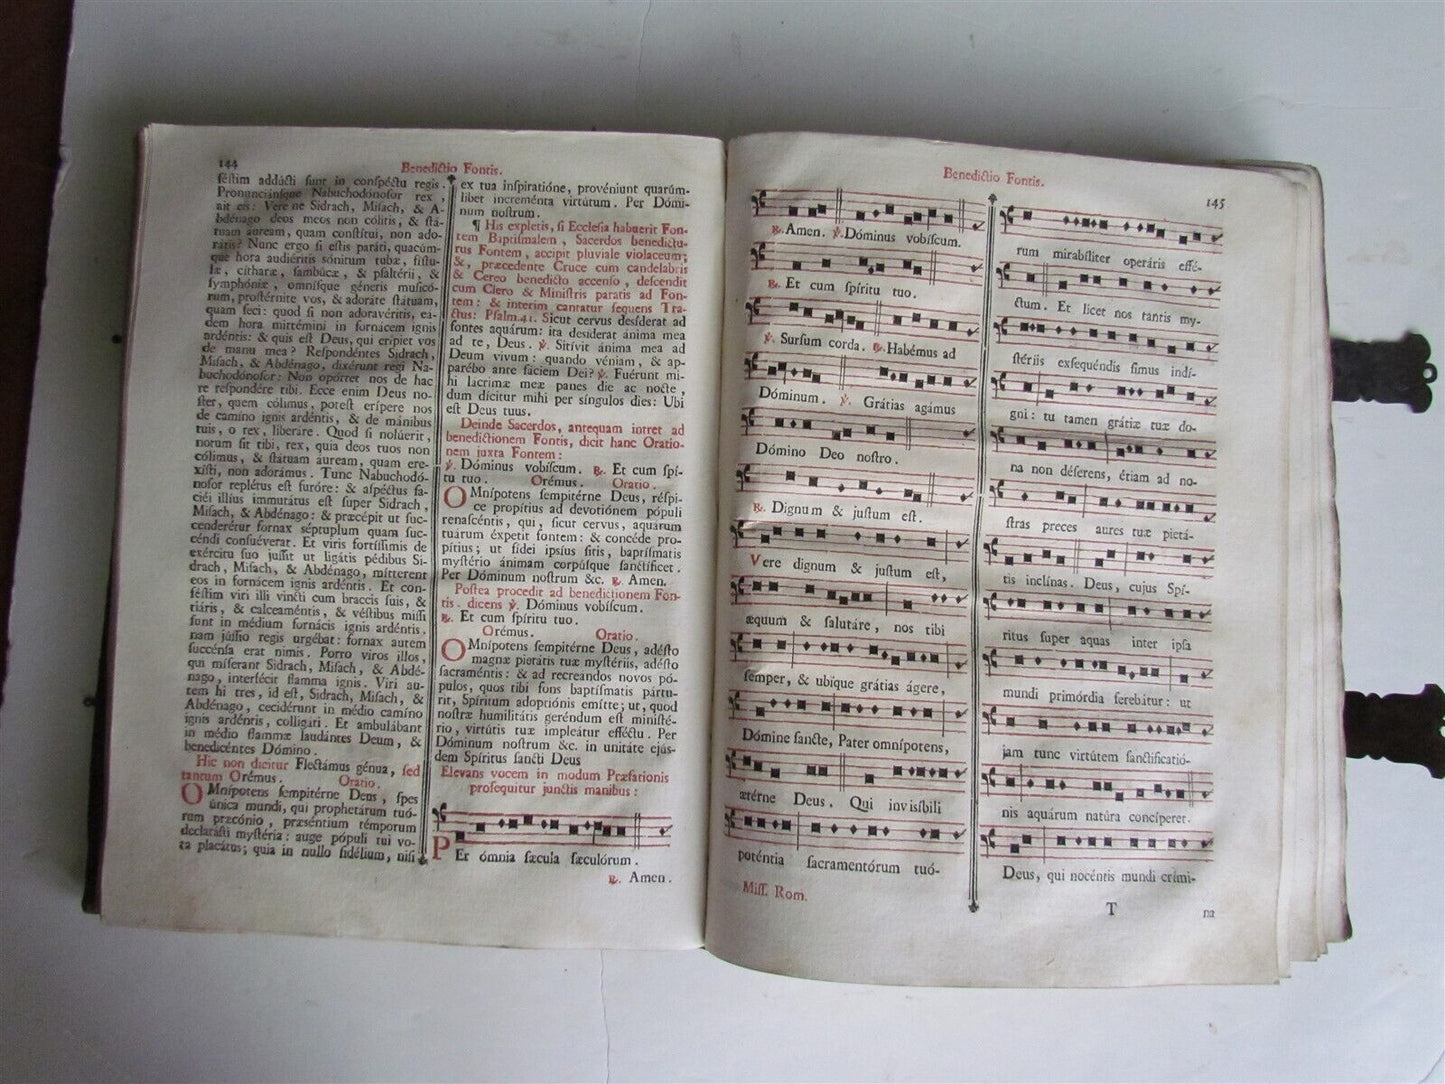 144
Benedictio Fontis.
féſtim addúcti ſunt in conſpéctu regis.
Pronunciánſque Nabuchodónoſor rex,
ait eis: Vere ne Sidrach, Miſach, & A-
bdénago deos meos non cólitis, & ſtá-
tuam auream, quam conſtítui, non ado-
rátis? Nunc ergo ſi eſtis paráti, quacúm-
que hora audiéritis sónitum tubæ, fíſtu-
læ, cítharæ, ſambúcæ, & pſaltérii, &
ſymphóniæ, omníſque géneris muſicó-
rum, proſtérnite vos, & adoráte ſtátuam,
quam feci: quod ſi non adoravéritis, eá-
dem hora mittémini in fornácem ignis
ardéntis: & quis eſt Deus, qui erípiet vos
de manu mea? Reſpondéntes Sidrach,
Miſach, & Abdénago, dixérunt regi Na-
buchodónoſor: Non opórtet nos de hac
re reſpondére tibi. Ecce enim Deus no-
ſter, quem cólimus, poteſt erípere nos
de camíno ignis ardéntis, & de mánibus
tuis, o rex, liberáre. Quod ſi nolúerit,
notum ſit tibi, rex, quia deos tuos non
cólimus, & ſtátuam auream, quam ere-
xíſti, non adorámus. Tunc Nabuchodó-
noſor replétus eſt furóre: & aſpéctus fa-
ciéi illíus immutátus eſt ſuper Sidrach,
Miſach, & Abdénago: & præcépit ut ſuc-
cenderétur fornax séptuplum quam ſuc-
céndi conſuéverat. Et viris fortíſſimis de
exércitu ſuo juſſit ut ligátis pédibus Si-
drach, Miſach, & Abdénago, mítterent
eos in fornácem ignis ardéntis. Et con-
féſtim viri illi vincti cum braccis ſuis, &
tiáris, & calceaméntis, & véſtibus miſſi
ſunt in médium fornácis ignis ardéntis,
nam júſſio regis urgébat: fornax autem
ſuccénſa erat nimis. Porro viros illos,
qui míſerant Sidrach, Miſach, & Abdé-
nago, interfécit flamma ignis. Viri au-
tem hi tres, id eſt, Sidrach, Miſach, &
Abdénago, cecidérunt in médio camíno
ignis ardéntis, colligáti. Et ambulábant
in médio flammæ laudántes Deum, &
benedicéntes Dómino.
Hic non dicitur Flectámus génua, ſed
tantum Orémus. Oratio.
OMnípotens ſempitérne Deus, ſpes
única mundi, qui prophetárum tuó-
rum præcónio, præséntium témporum
declaráſti myſtéria: auge pópuli tui vo-
ta placátus; quia in nullo fidélium, niſi
ex tua inſpiratióne, provéniunt quarúm-
libet increménta virtútum. Per Dómi-
num noſtrum.
¶ His expletis, ſi Eccleſia habuerit Fon-
tem Baptiſmalem, Sacerdos benedictu-
rus Fontem, accipit pluviale violaceum;
&, præcedente Cruce cum candelabris
& Cereo benedicto accenſo, deſcendit
cum Clero & Miniſtris paratis ad Fon-
tem: & interim cantatur ſequens Tra-
ctus: Pſalm.41. Sicut cervus desíderat ad
fontes aquárum: ita desíderat ánima mea
ad te, Deus. ℣. Sitívit ánima mea ad
Deum vivum: quando véniam, & ap-
parébo ante fáciem Dei? ℣. Fuérunt mi-
hi lacrimæ meæ panes die ac nocte,
dum dícitur mihi per síngulos dies: Ubi
eſt Deus tuus.
Deinde Sacerdos, antequam intret ad
benedictionem Fontis, dicit hanc Oratio-
nem juxta Fontem:
℣. Dóminus vobíſcum. ℟. Et cum ſpí-
tu tuo. Orémus. Oratio.
OMnípotens ſempitérne Deus, réſpi-
ce propítius ad devotiónem pópuli
renaſcéntis, qui, ſicut cervus, aquárum
tuárum éxpetit fontem: & concéde pro-
pítius; ut fídei ipsíus ſitis, baptíſmatis
myſtério ánimam corpúſque ſanctíficet.
Per Dóminum noſtrum &c. ℟. Amen.
Poſtea procedit ad benedictionem Fon-
tis. dicens ℣. Dóminus vobíſcum.
℟. Et cum ſpíritu tuo.
Orémus. Oratio.
OMnípotens ſempitérne Deus, adéſto
magnæ pietátis tuæ myſtériis, adéſto
ſacraméntis: & ad recreándos novos pó-
pulos, quos tibi fons baptíſmatis pártu-
rit, Spíritum adoptiónis emítte; ut, quod
noſtræ humilitátis geréndum eſt miniſté-
rio, virtútis tuæ impleátur efféctu. Per
Dóminum noſtrum &c. in unitáte ejús-
dem Spíritus ſancti Deus
Elevans vocem in modum Præfationis
proſequitur junctis manibus:
PEr ómnia ſæcula ſæculórum.
℟. Amen.
Benedictio Fontis.
145
℟. Amen. ℣. Dóminus vobíſcum.
℟. Et cum ſpíritu tuo.
℣. Surſum corda. ℟. Habémus ad
Dóminum. ℣. Grátias agámus
Dómino Deo noſtro.
℟. Dignum & juſtum eſt.
Vere dignum & juſtum eſt,
æquum & ſalutáre, nos tibi
ſemper, & ubíque grátias ágere,
Dómine ſancte, Pater omnípotens,
ætérne Deus. Qui inviſíbili
poténtia ſacramentórum tuó-
Miſſ. Rom.
rum mirabíliter operáris effé-
ctum. Et licet nos tantis my-
ſtériis exſequéndis ſimus indí-
gni: tu tamen grátiæ tuæ do-
na non déſerens, étiam ad no-
ſtras preces aures tuæ pietá-
tis inclínas. Deus, cujus Spí-
ritus ſuper aquas inter ipſa
mundi primórdia ferebátur: ut
jam tunc virtútem ſanctificatió-
nis aquárum natúra concíperet.
Deus, qui nocéntis mundi crími-
T
na